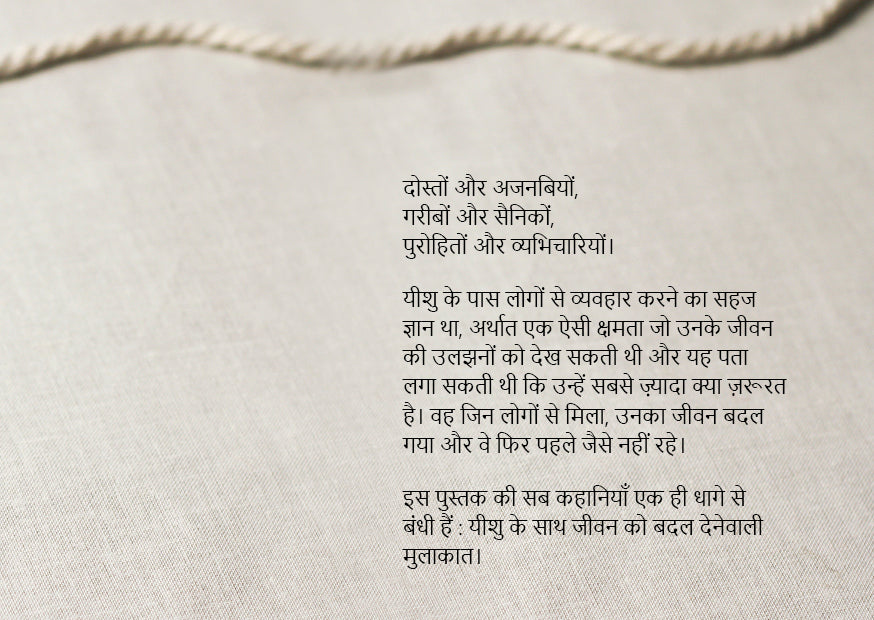 दोस्तों और अजनबियों,
गरीबों और सैनिकों,
पुरोहितों और व्यभिचारियों।
यीशु के पास लोगों से व्यवहार करने का सहज
ज्ञान था, अर्थात एक ऐसी क्षमता जो उनके जीवन
की उलझनों को देख सकती थी और यह पता
लगा सकती थी कि उन्हें सबसे ज़्यादा क्या ज़रूरत
है। वह जिन लोगों से मिला, उनका जीवन बदल
गया और वे फिर पहले जैसे नहीं रहे।
इस पुस्तक की सब कहानियाँ एक ही धागे से
बंधी हैं : यीशु के साथ जीवन को बदल देनेवाली
मुलाकात।